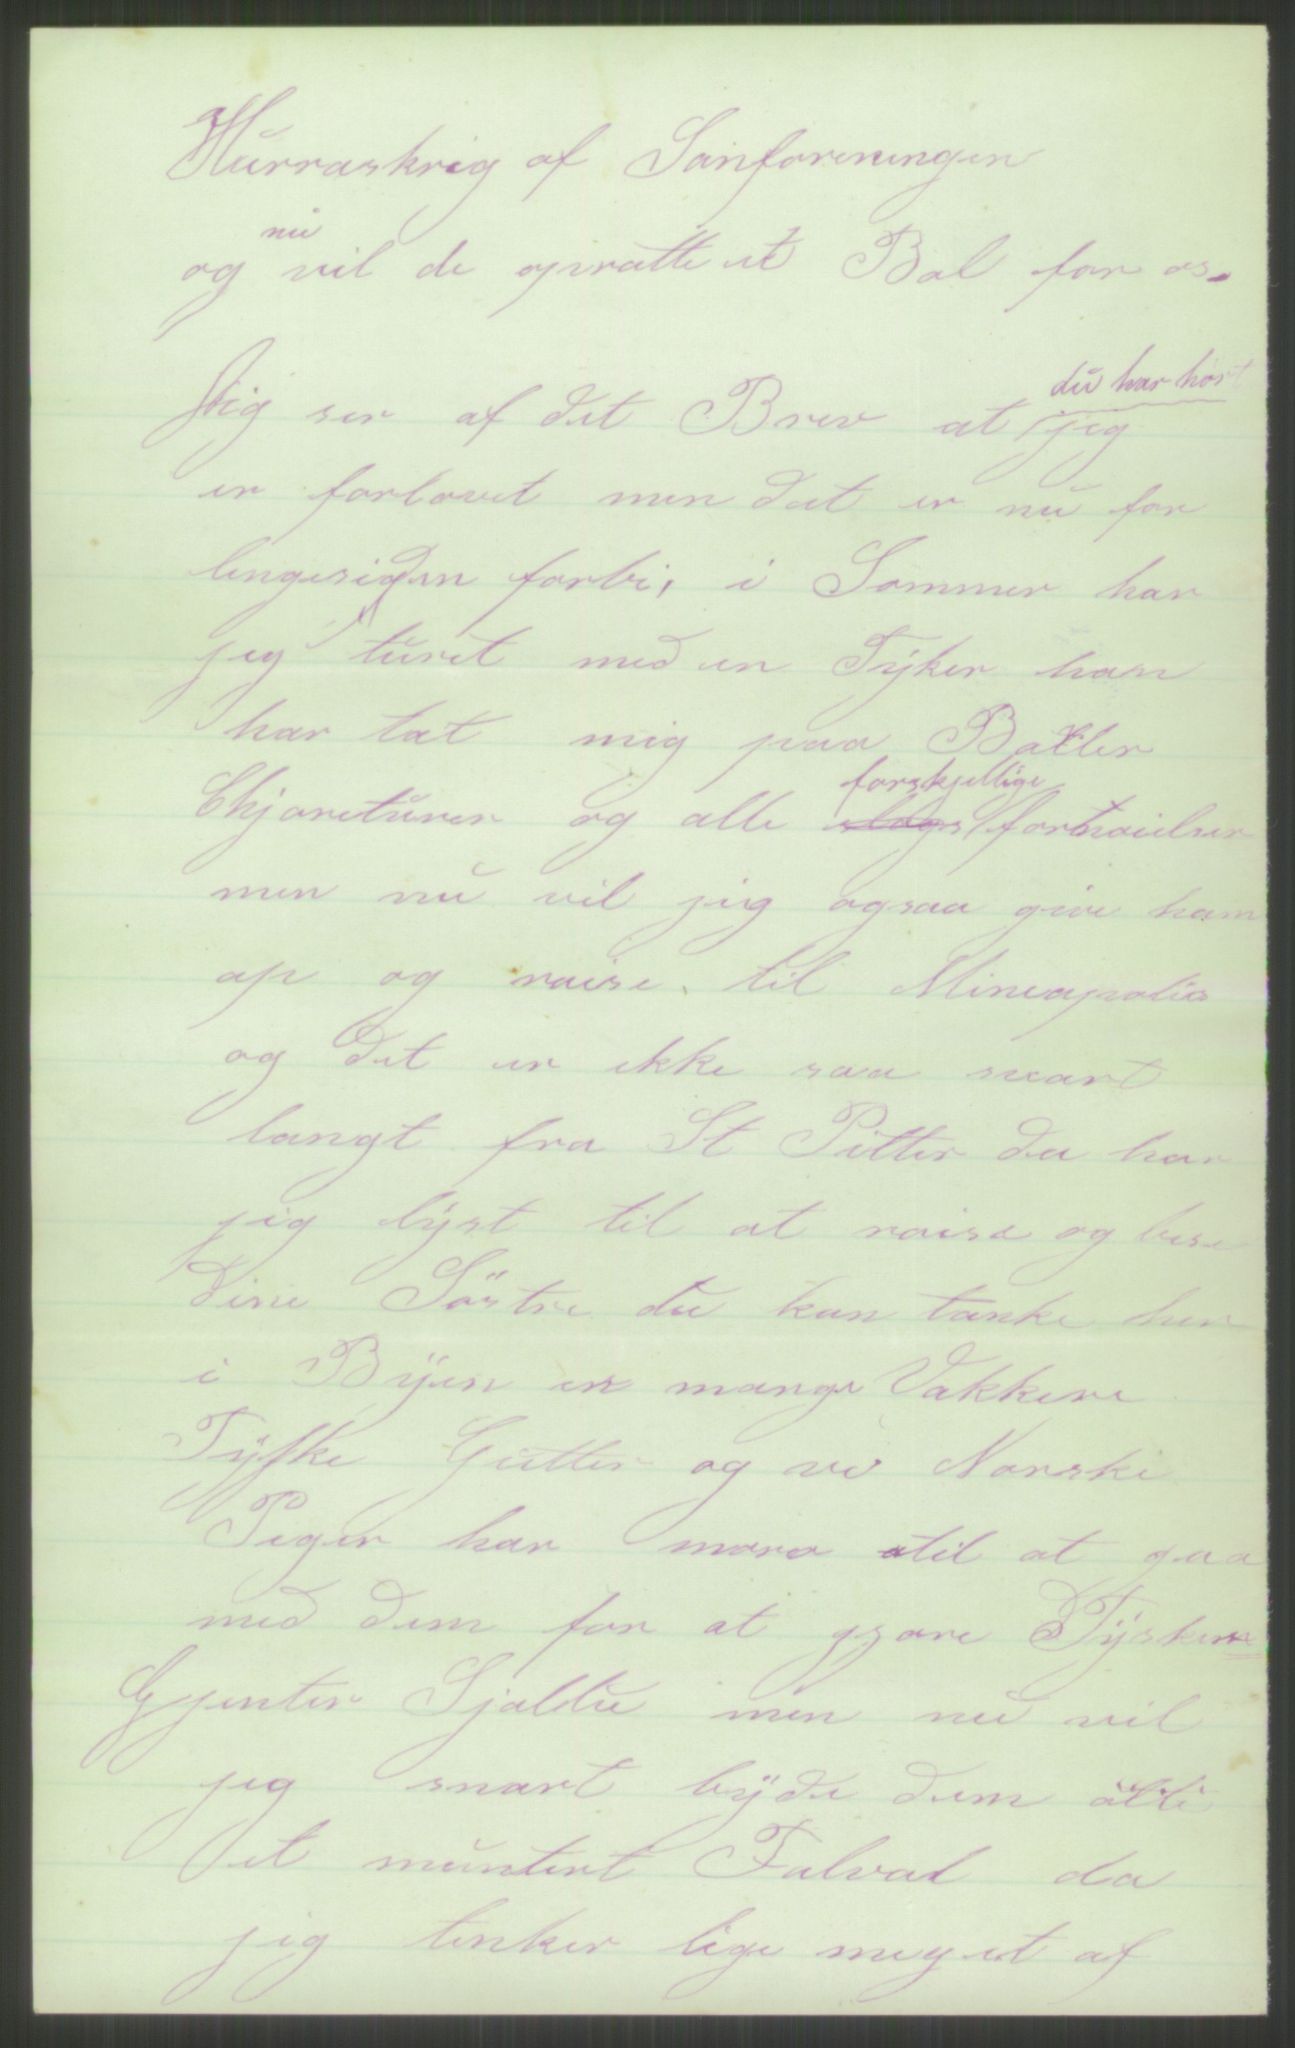 Hurraskrig af Sanforeningen
nu
og vil de opratte et Bal for os.
du har hort
Jeg ser af dit Brev at jeg
er forlovet men dat er nu for
lengesiden forbi, i Sommer har
jeg turet med en Tyker han
har tat mig paa Baller
forskjellige
Chjoreturer og alle slags fornoielser
men nu vil jeg ogsaa give ham
op og raise til Mineapolis
og det er ikke saa svart
langt fra St Pitter da har
jeg lyst til at raise og bese
dine Söstre du kan tanke her
i Byen er mange Vakkere
Tyske Gutter og vi Norske
Peger har mora til at gaa
med dem for at gjore Tysker
Gjenter Sjalue men nu vil
jeg snart byde dem alle
et muntert Falval da
jeg tenker lige meget af